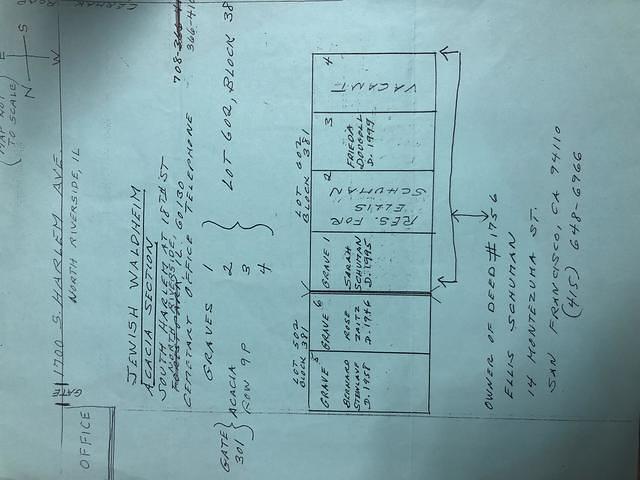 CERMAK ROAD
(MAP NOT
TO SCALE)
E
N
S
W
GATE
1700 S. HARLEM AVE.
NORTH RIVERSIDE, IL
OFFICE
JEWISH WALDHEIM
ACACIA SECTION
SOUTH HARLEM AT 18TH ST
NORTH RIVERSIDE, IL 60130
CEMETARY OFFICE TELEPHONE 708-366-41
GRAVES 1
2
3
4
LOT 602, BLOCK 38
GATE
301
ACACIA
ROW 9P
LOT 502
BLOCK 381
LOT 602
BLOCK 381
GRAVE 5
BERNARD
D. 1958
GRAVE 6
ROSE
ZAITZ
D. 1946
GRAVE 1
SARAH
SCHUMAN
D. 1995
2
RES. FOR
ELLIS
SCHUMAN
3
FRIEDA
D. 1999
4
VACANT
OWNER OF DEED #1756
ELLIS SCHUMAN
14 MONTEZUMA ST.
SAN FRANCISCO, CA 94110
(415) 648-6966